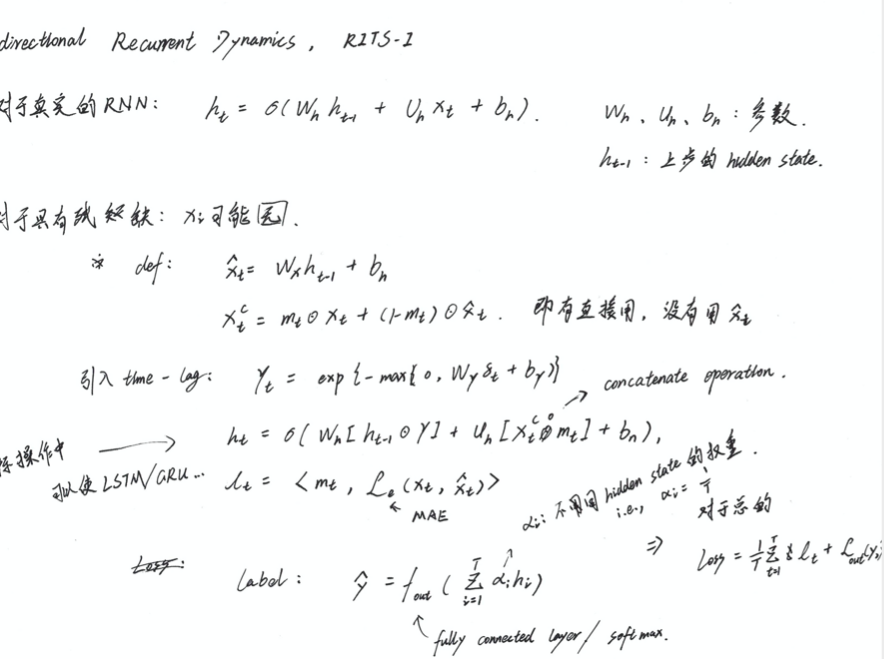 directional Recurrent Dynamics, RITS-I
对于真实的RNN: h_t = σ(W_h h_{t-1} + U_h x_t + b_h).
W_h、U_h、b_h: 参数.
h_{t-1}: 上步的 hidden state.
对于具有缺: x_i可能
※ def: x̂_t = W_x h_{t-1} + b_h
x_t^c = m_t ⊙ x_t + (1-m_t) ⊙ x̂_t. 即有直接用, 没有用 x̂_t
引入 time-lag: γ_t = exp{-max{0, W_γ δ_t + b_γ)}
→ concatenate operation.
操作中 → h_t = σ(W_h[h_{t-1} ⊙ γ] + U_h[x_t^c ∘ m_t] + b_h),
可以使 LSTM/GRU...
l_t = <m_t, L_e(x_t, x̂_t)>
← MAE
α_i: 不同 hidden state 的权重.
i.e., α_i = 1/T
对于总的
⇒ Loss = 1/T Σ_{t=1}^T l_t + L_out(y,
Loss:
Label: ŷ = f_out(Σ_{i=1}^T α_i h_i)
fully connected layer / softmax.